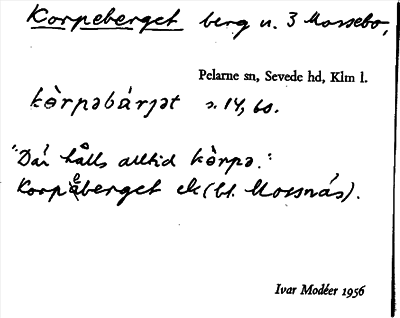 Korpeberget berg n. 3 Mossebo,
Pelarne sn, Sevede hd, Klm l.
kȯ̀rpəbárjət s. 14, 60.
"Där hålls alltid kȯ̀rpə."
Korpeberget ek (bl. Mossnäs).
Ivar Modéer 1956